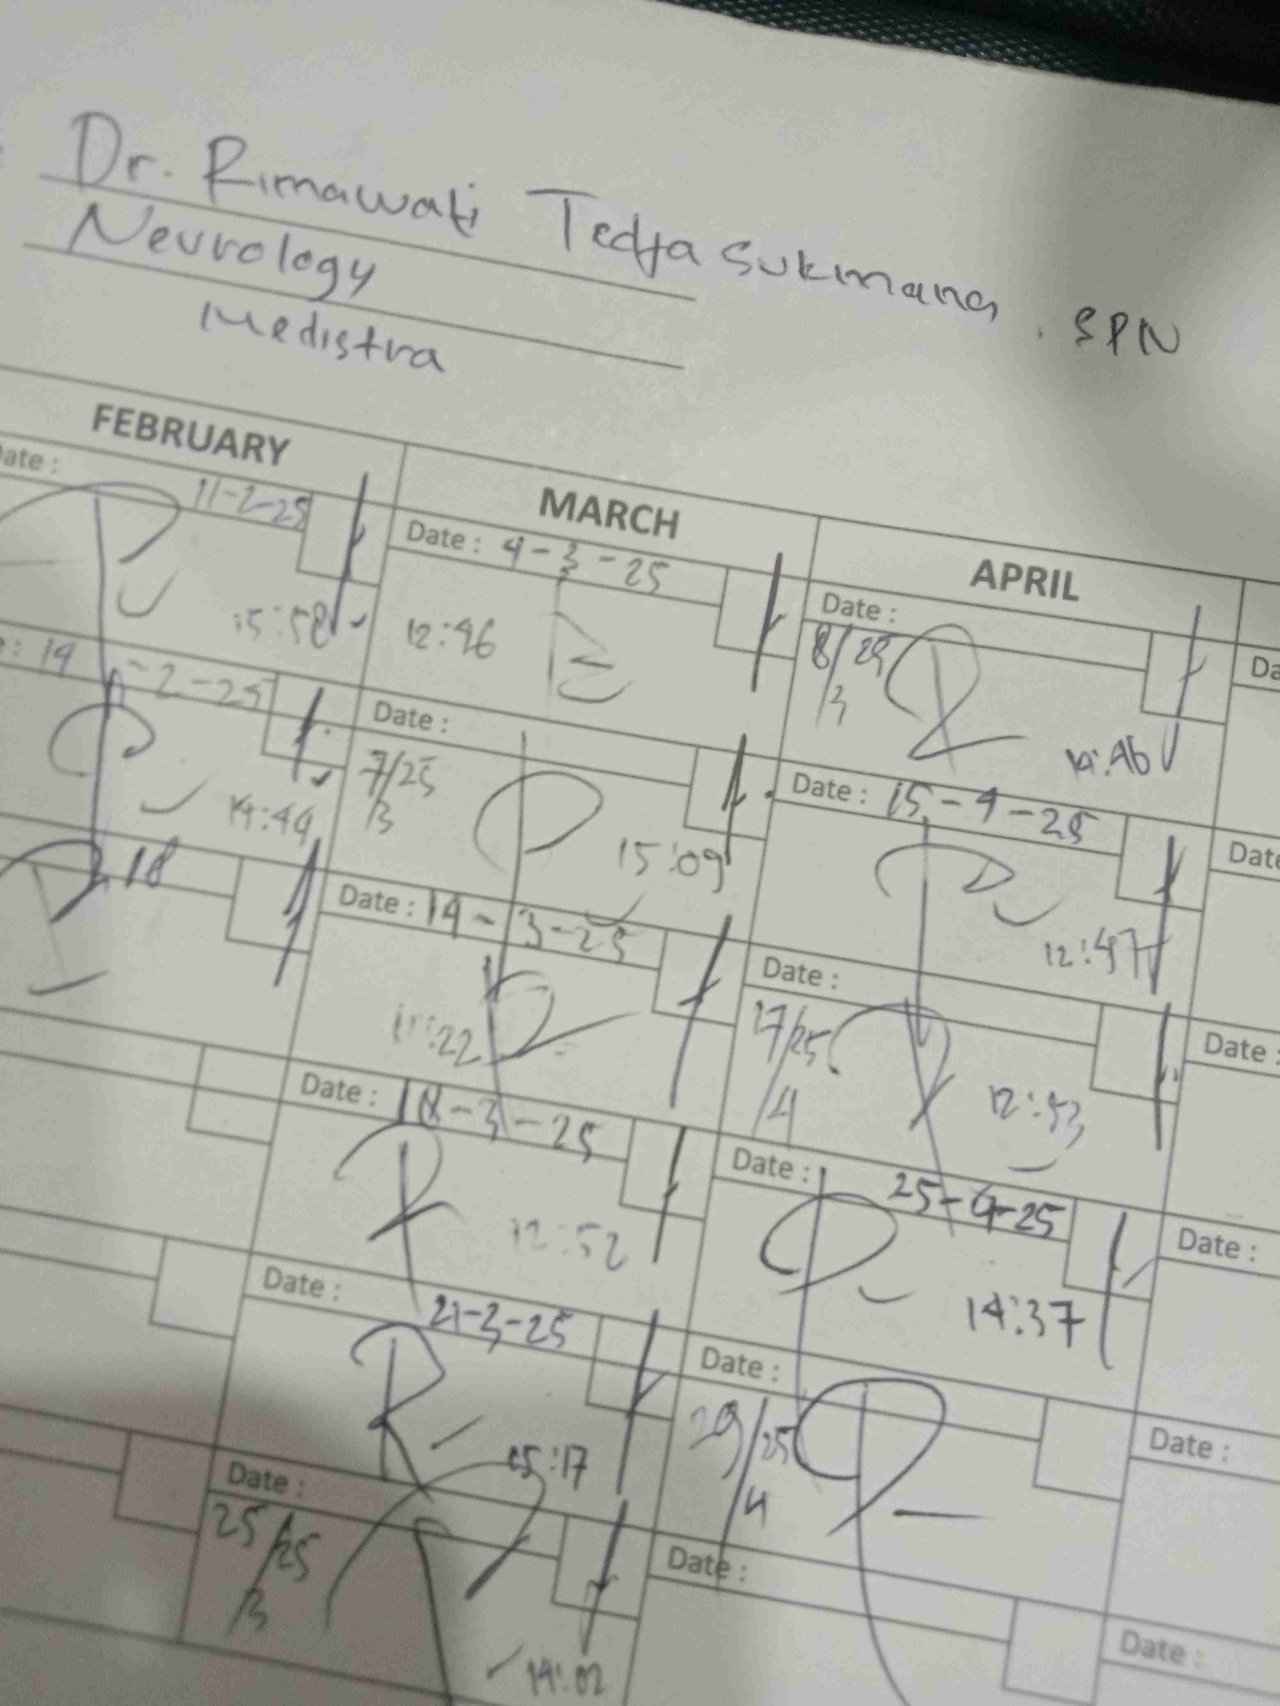 Dr. Rimawati Tedjasukmana, SPN
Neurology
Medistra
FEBRUARY
ate :
11-2-25
15:58
: 14-2-25
14:44
18
MARCH
Date : 4-3-25
12:46
Date :
7/25
/3
15:09
Date : 14-3-25
:22
Date : 18-3-25
12:52
Date :
21-3-25
15:17
Date :
25/25
/3
14:02
APRIL
Date :
8/25
14:46
Date : 15-4-25
12:47
Date :
/25
/4
12:53
Date :
25-4-25
14:37
Date :
29/25
/4
Date :
Da
Date
Date :
Date :
Date :
Date :